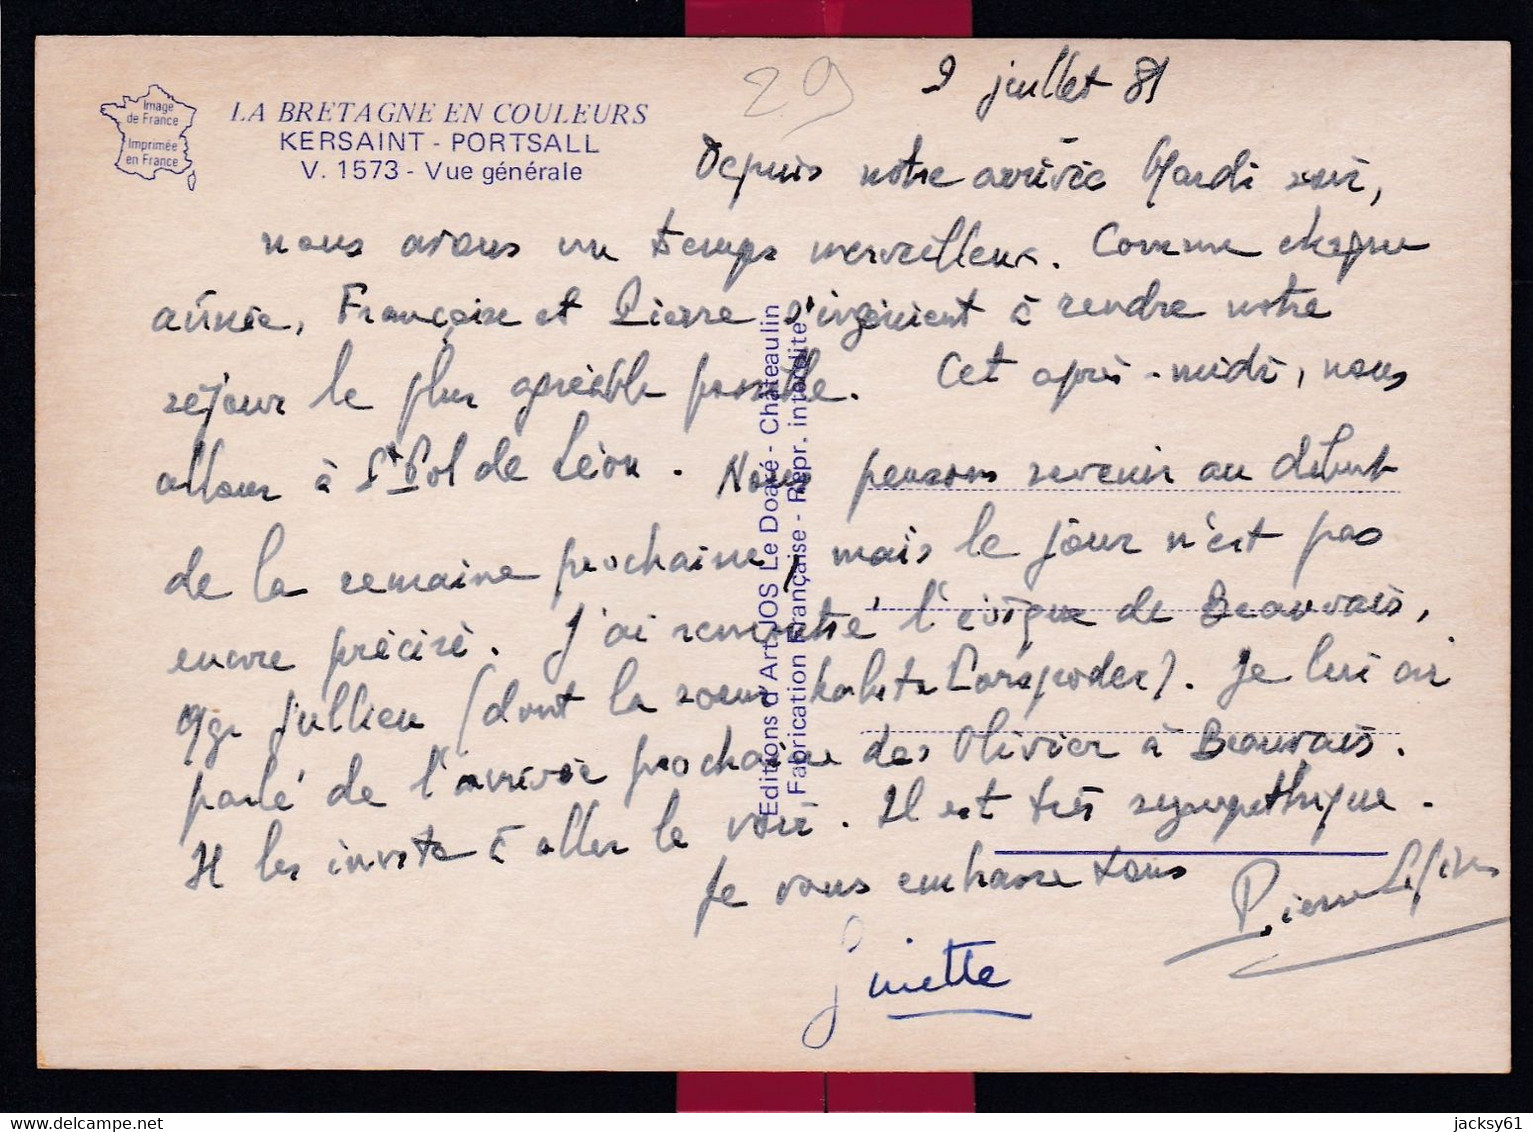 29
9 juillet 81
Image
de France
Imprimée
en France
LA BRETAGNE EN COULEURS
KERSAINT - PORTSALL
V. 1573 - Vue générale
Depuis notre arrivée Mardi soir,
nous avons un temps merveilleux. Comme chaque
année, Françoise et Pierre s'ingénient à rendre notre
séjour le plus agréable possible. Cet après-midi, nous
allons à St Pol de Léon. Nous pensons revenir au début
de la semaine prochaine, mais le jour n'est pas
encore précisé. J'ai rencontré l'évêque de Beauvais,
Mgr Jullien (dont la soeur habite). Je lui ai
parlé de l'arrivée prochaine des Olivier à Beauvais.
Il les invite à aller le voir. Il est très sympathique.
Je vous embrasse tous
Pierre
Ginette
Editions d'Art JOS Le Doaré - Châteaulin
Fabrication Française - Repr. interdite
jacksy61
delcampe.net